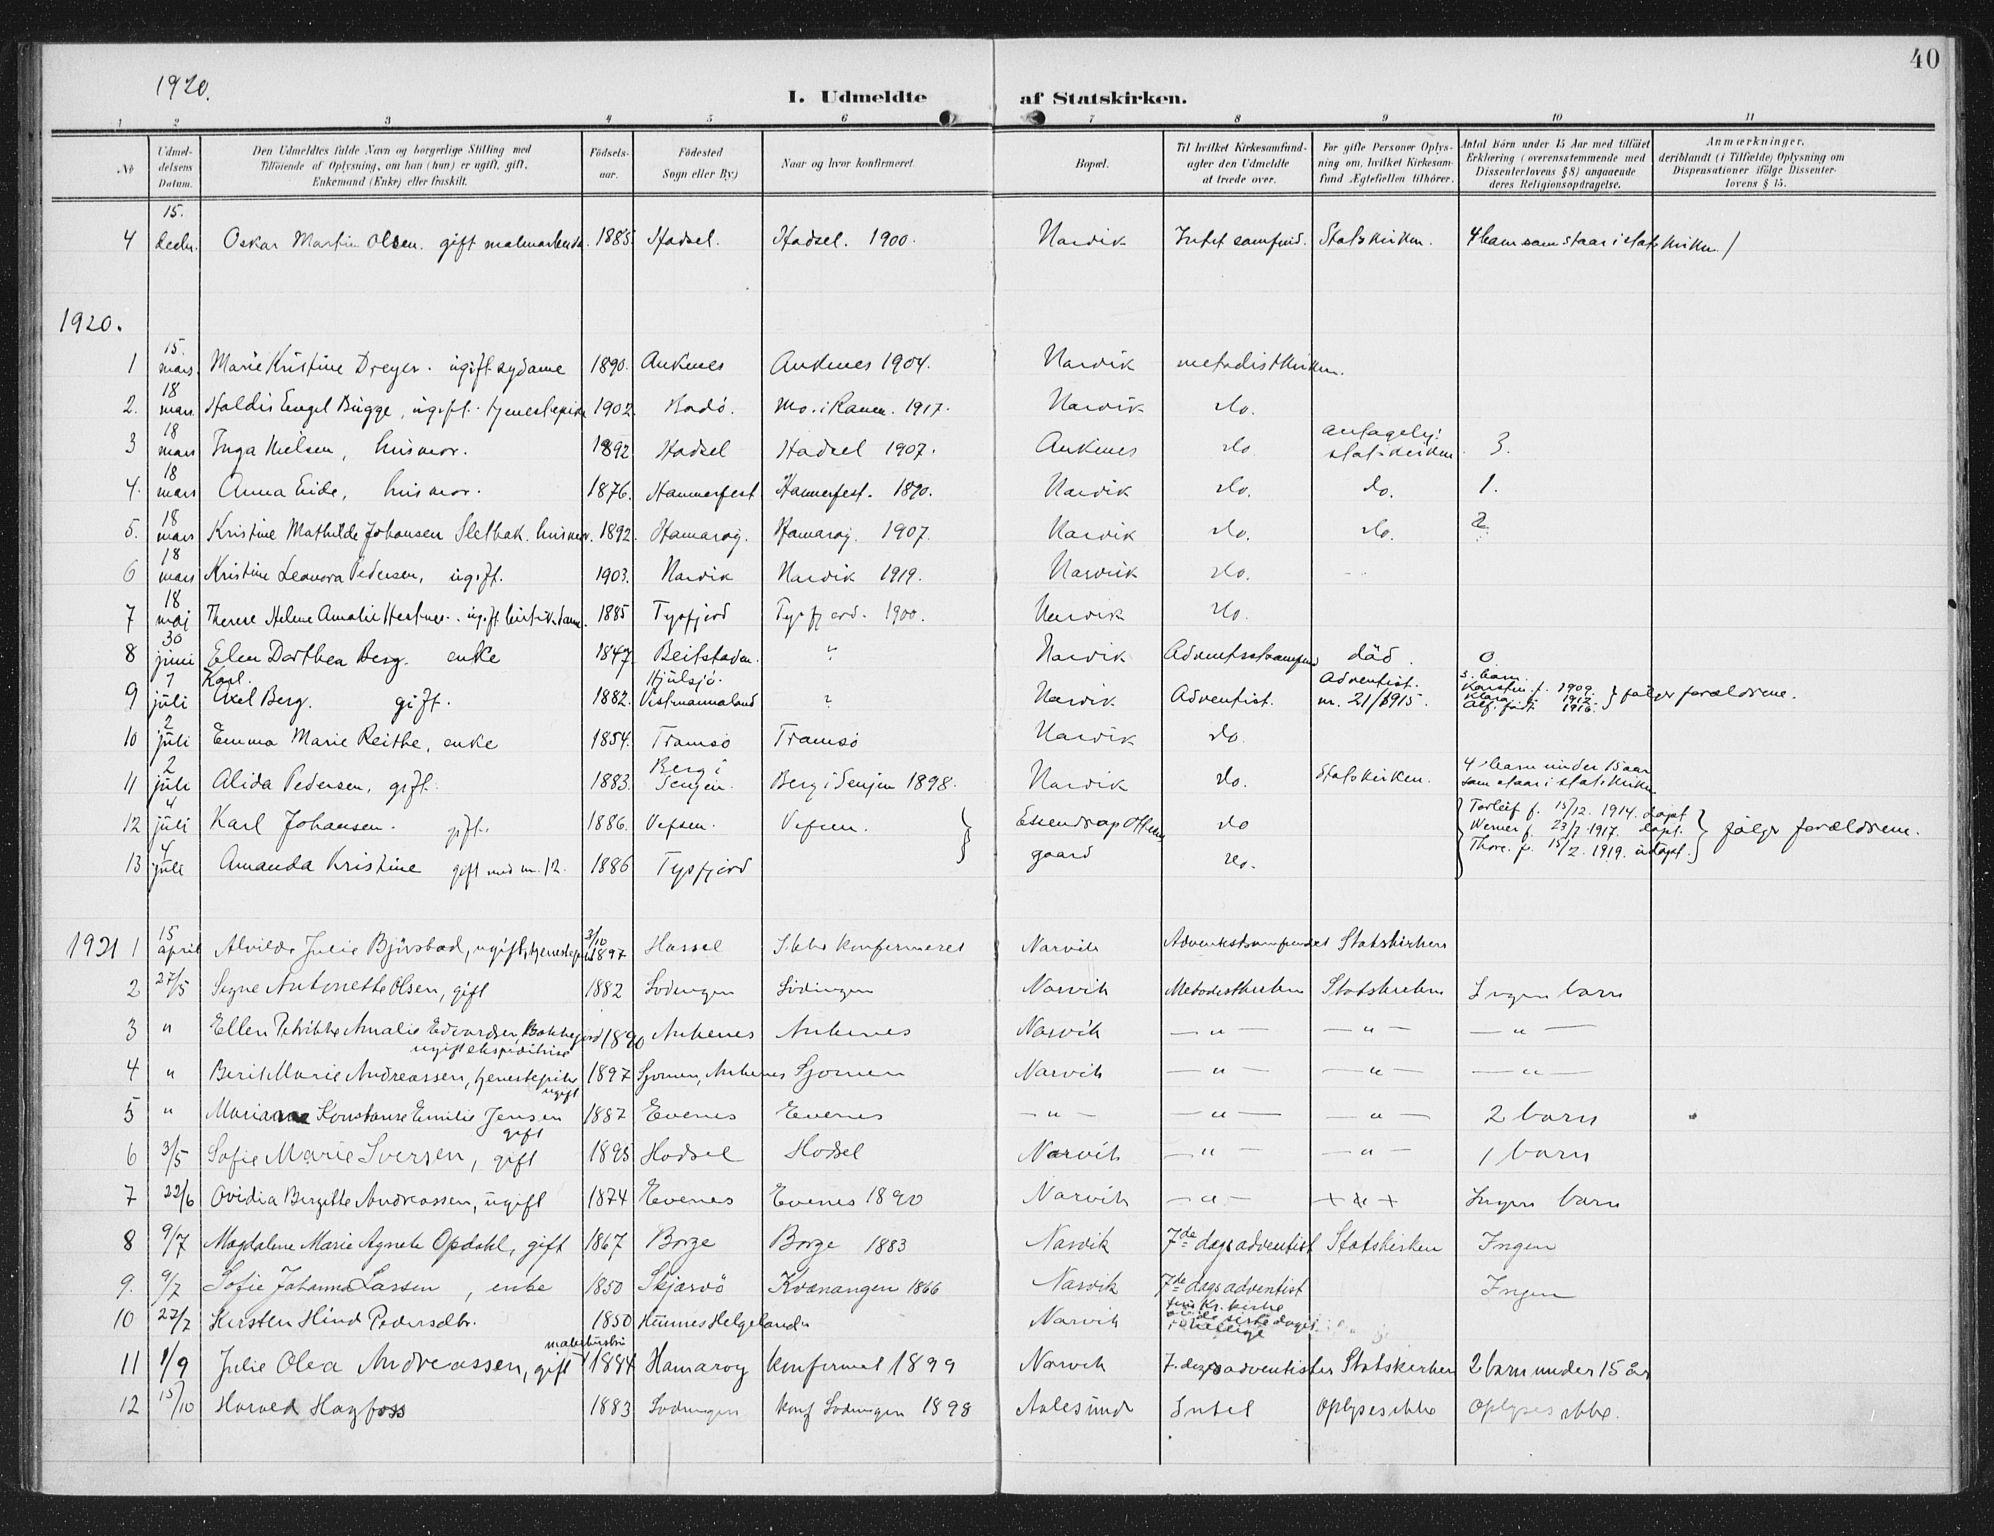 40
1920.
I. Udmeldte af Statskirken.
1 2 3 4 5 6 7 8 9 10 11
No. Udmeldelsens Datum. Den Udmeldtes fulde Navn og borgerlige Stilling med Tilføiende af Oplysning, om han (hun) er ugift, gift, Enkemand (Enke) eller fraskilt. Fødselsaar. Fødested Sogn eller By.) Naar og hvor konfirmeret. Bopæl. Til hvilket Kirkesamfund agter den Udmeldte at træde over. For gifte Personer Oplysning om, hvilket Kirkesamfund Ægtefællen tilhører. Antal Børn under 15 Aar med tilføiet Erklæring (overensstemmende med Dissenterlovens § 8) angaaende deres Religionsopdragelse. Anmærkninger, deriblandt (i Tilfælde) Oplysning om Dispensationer ifølge Dissenterlovens § 15.
4 15. decbr. Oskar Martin Olsen. gift malmarbeider 1885. Hadsel. Hadsel. 1900. Narvik Intet samfund. Statskirken. 4 barn som staar i statskirken.
1920.
1 15. mars. Marie Kristine Dreyer. ugift sydame 1890. Ankenes Ankenes 1904. Narvik metodistkirken.
2. 18 mars. Haldis Engel Bugge, ugift. tjenestepike 1902. Bodö. Mo. i Ranen. 1917. Narvik do.
3 18 mars Inga Nielsen, husmor. 1892 Hadsel Hadsel 1907. Ankenes do. antagelig statskirken. 3.
4. 18 mars Anna Eide, husmor. 1876. Hammerfest Hammerfest. 1890. Narvik do. do. 1.
5. 18 mars Kristine Mathilde Johansen Sletbak. husmor. 1892. Hamaröy. Hamaröy. 1907. Narvik do. do. 2.
6 18 mars Kristine Leonora Pedersen, ugift. 1903. Narvik Narvik 1919. Narvik do.
7 18 maj Therese Helene Amalie ugift 1885 Tysfjord Tysfjord. 1900. Narvik do.
8 30 juni Elen Dorthea Berg. enke 1847. Beitstaden. " Narvik Adventsamfund död. 0
9 1 juli Karl Axel Berg. gift. 1882. Hjulsjö. Vestmannaland ? Narvik Adventist. Adventist. nr. 21/1915. 3. barn. Karsten f. 1909. Klara f. 1912. Alf. född 1916. } fölger forældrene.
10 2 juli Emma Marie Reithe, enke 1854. Tromsö Tromsö Narvik do.
11 2 juli Alida Pedersen, gift. 1883. Berg i Senjen. Berg i Senjen 1898. Narvik do. Statskirken. 4 barn under 15 aar som staar i statskirken
12 4 juli Karl Johansen. gift. 1886. Vefsen. Vefsen. do Torleif f. 15/12. 1914. döpt Werner f. 23/7. 1917. döpt. Thore. f. 15/2. 1919. udöpt. } fölger forældrene.
13 4 juli Amanda Kristine gift med nr. 12. 1886 Tysfjord gaard do.
1921 1 15 april Alvilde Julie Björsbad, ugift, tjenestepike 3/10 1897 Hassel Ikke konfirmeret Narvik Adventistsamfundet Statskirken
2 27/5 Signe Antonette Olsen, gift 1882 Lödingen Lödingen Narvik Metodistkirken Statskirken Ingen barn
3 " Ellen Petrikke Amalie Edvardsen, Bokkefjord ugift ekspeditrise 1890 Ankenes Ankenes Narvik — " — — " — — " —
4 " Berit Marie Andreassen, tjenestepike ugift 1897 Sjomen, Ankenes Sjomen Narvik — " — — " — — " —
5 " Mariane Konstanse Emilie Jensen gift 1887 Evenes Evenes — " — — " — — " — 2 barn
6 3/5 Sofie Marie Iversen, gift 1895 Hadsel Hadsel Narvik — " — — " — 1 barn
7 22/6 Ovidia Bergitte Andreassen, ugift 1874 Evenes Evenes 1890 Narvik — " — + " + Ingen barn
8 9/7 Magdalene Marie Agnete Opdahl, gift 1867 Borge Borge 1883 Narvik 7de dags adventist Statskirken Ingen
9. 9/7 Sofie Johanna Larsen, enke 1850 Skjærvö Kvænangen 1866 Narvik 7de dags adventist Ingen
10 27/7 Kirsten Hind Pedersdtr. 1850 Hünnes Helgeland Narvik Jesu Kr. kirke av de siste dages hellige
11 1/9 Julie Olea Andreassen, gift 1884 Hamaröy konfirmert 1899 Narvik 7. dags adventister Statskirken 2 barn under 15 år
12 15/10 Harald Hagfoss 1883 Lödingen konf Lödingen 1898 Aalesund Intet Oplyses ikke Oplyses ikke.